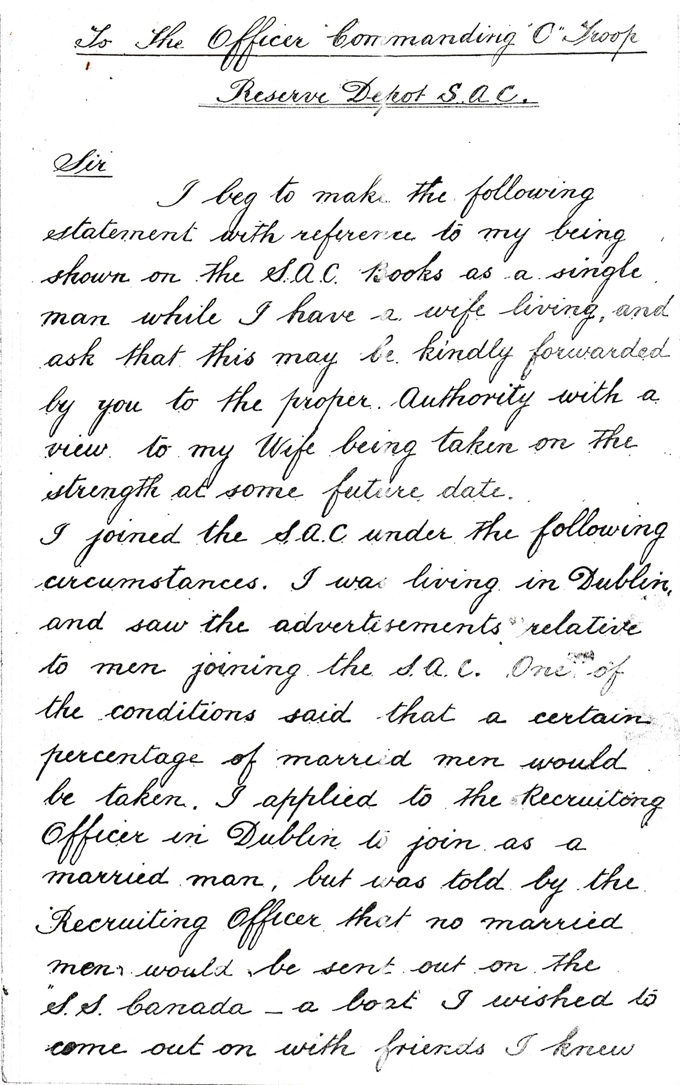 To The Officer Commanding "C" Troop
Reserve Depot S.A.C.
Sir
I beg to make the following
statement with reference to my being
shown on the S.A.C. Books as a single
man while I have a wife living, and
ask that this may be kindly forwarded
by you to the proper. Authority with a
view to my Wife being taken on the
strength at some future date.
I joined the S.A.C under the following
circumstances. I was living in Dublin,
and saw the advertisements relative
to men joining the S.A.C. One of
the conditions said that a certain
percentage of married men would
be taken. I applied to the Recruiting
Officer in Dublin to join as a
married man, but was told by the
Recruiting Officer that no married
men would be sent out on the
"S.S. Canada – a boat I wished to
come out on with friends I knew